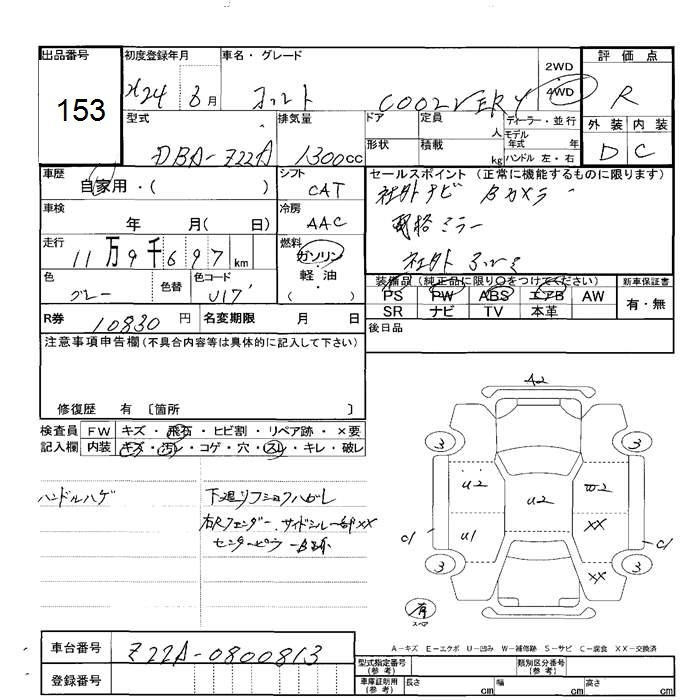 出品番号 初度登録年月 車名・グレード 2WD 4WD 評価点
153
H24 6月 コルト COOLVERY R
型式 排気量 ドア 定員 人 ディーラー・並行 外装 内装
DBA-Z22A 1300cc 形状 積載 kg モデル年式 年 ハンドル 左・右 D C
車歴 自家用・( ) シフト CAT セールスポイント (正常に機能するものに限ります)
社外ナビ Bカメラ
車検 年 月( 日) 冷房 AAC
ミラー
走行 11万9千697km 燃料 ガソリン 軽油 ( )
社外 アルミ
色 グレー 色替 色コード U17 装備品 (純正品に限り○をつけてください) 新車保証書
PS PW ABS エアB AW 有・無
SR ナビ TV 本革
R券 10830円 名変期限 月 日 後日品
注意事項申告欄 (不具合内容等は具体的に記入して下さい)
修復歴 有 〔箇所 〕
検査員記入欄 FW キズ・飛石・ヒビ割・リペア跡・×要
内装 キズ・汚レ・コゲ・穴・スレ・キレ・破レ
ハンドルハゲ
右Rフェンダー、サイドシル一部XX
センターピラー
A2
3 3
U2 U2 W2
U1 XX
C1 C1
3 XX 3
有
スペア
A-キズ E-エクボ U-凹み W-補修跡 S-サビ C-腐食 XX-交換済
車台番号 Z22A-0800813
型式指定番号 (参考) 類別区分番号 (参考)
登録番号 車庫証明用 (参考) 長さ cm 幅 cm 高さ cm